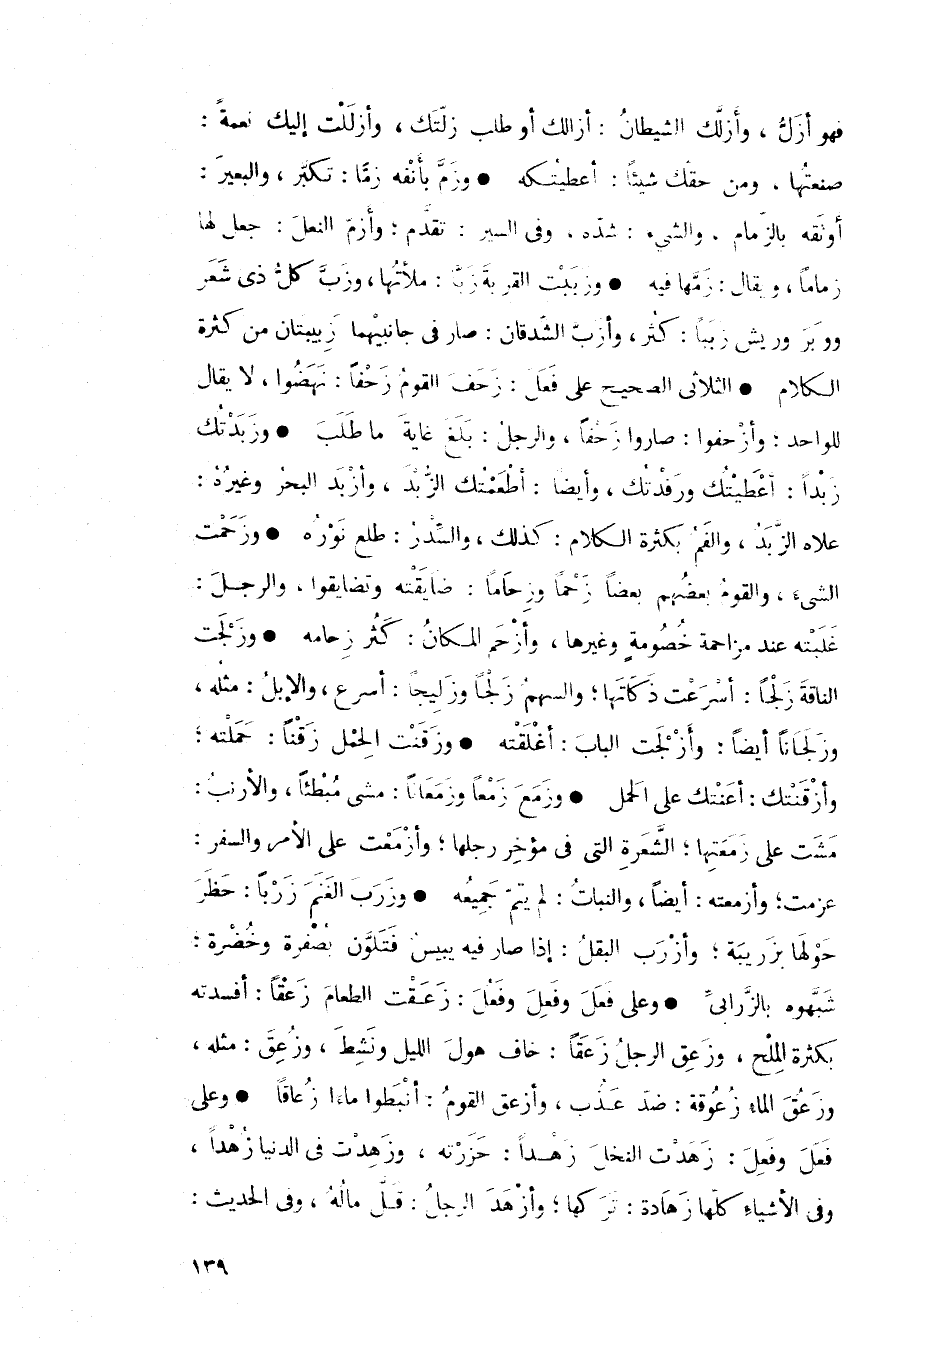 فهو أزَلُّ ، وأَزلَّك الشيطانُ : أزالك أو طلب زلّتَك ، وأزلَلْت إليك نعمةً :
صنعتُها . ومن حقّك شيئاً : أعطيتُـكه ● وزَمَّ بأَنْفه زمًّا : تكبّر ، والبعيرَ :
أوثَقه بالزّمام . والشيء : شدّه . وفى السير : تقدَّم ؛ وأَزمّ النعلَ : جعل لها
زماماً ، ويقال : زَمَّها فيه ● وزَبَبْت القربةَ زَبًّا : ملأتُها ، وزَبَّ كلُّ ذى شَعَر
ووبَر وريش زَبَباً : كثُر ، وأزَبَّ الشّدقان : صار فى جانبيْهما زَبيبتان من كثرة
الكلام ● الثلاثى الصحيح على فَعَلَ : زَحَفَ القومُ زَحْفاً : نَهَضُوا ، لا يقال
للواحد : وأزْحفوا : صاروا زَحْفاً ، والرجلُ : بَلَغ غايةَ ما طَلَبَ ● وزَبَدْتُك
زَبْداً : أعْطَيْتُك ورَفْدتُك ، وأيضاً : أطْعَمْتك الزُّبْدَ ، وأزْبَد البحرُ وغيرُهُ :
علاه الزَّبَدُ ، والفَمُ بكثرة الكلام : كذلك ، والسِّدْرُ : طلع نَوْرُه ● وزَحَمْت
الشىءَ ، والقومُ بعضُهم بعضاً زَحْماً وزِحَاماً : ضايَقْته وتضايقوا . والرجلَ :
غَلَبْته عند مزاحمة خُصُومةٍ وغيرها ، وأزْحَم المكانُ : كَثُر زِحامه ● وزَلَجَت
الناقةَ زَلْجاً : أسْرَعْت ذَكَاتَها ؛ والسهمُ زَلْجًا وزَلِيجًا : أسرع ، والإبلُ : مثله ،
وزَلَجَاناً أيضاً : وأَزْلَجْت البابَ : أغْلَقْته ● وزَقَنْت الحِمْل زَقْناً : حَمَلْته ؛
وأزْقَنْتك : أعَنْتك على الحمل ● وزَمَعَ زَمْعاً وزَمَعَاناً : مشى مُبْطئاً ، والأرنبُ :
مَشَت على زَمَعَتِها ؛ الشَّعَرةِ التى فى مؤخِر رجلها ؛ وأزْمَعْت على الأمر والسفر :
عزمت؛ وأزمعته : أيضاً ، والنباتُ : لم يتمّ جَمِيعُه ● وزَرَبَ الغَنَم زَرْباً : حَظَر
حَوْلها بزَرِيبَة ؛ وأزْرَب البقلُ : إذا صار فيه يبيسٌ فَتَلوَّن بصُفْرة وخُضْرة :
شَبَّهوه بالزَّرابىِّ ● وعلى فَعَلَ وفَعِلَ وفَعُلَ : زَعَقْت الطعامَ زَعْقاً : أفسدته
بكثرة المِلْح ، وزَعِق الرجلُ زَعَقاً : خاف هولَ الليل ونَشِطَ ، وزُعِقَ : مثله ،
وزَعُقَ الماء زُعُوقة : ضدّ عَذُب ، وأزعق القومُ : أنْبَطوا ماءا زُعاقاً ● وعلى
فَعَلَ وفَعِلَ : زَهَدْت النخلَ زَهْداً : حَزَرْته ، وزَهِدْت فى الدنيا زُهْداً ،
وفى الأشياءِ كلّها زَهَادة : تَركها ؛ وأزْهَدَ الرجلُ : قَلّ مالُهُ ، وفى الحديث :
١٣٩